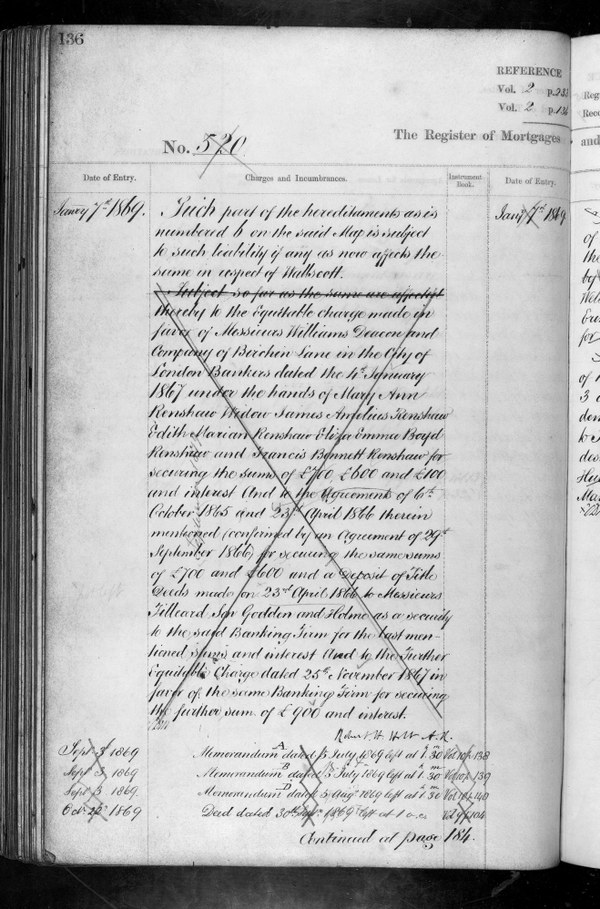 136
REFERENCE
Vol. 2 p. 233
Vol. 2 p. 136
No. 520
The Register of Mortgages
and
Date of Entry.
Charges and Incumbrances.
Instrument Book.
Date of Entry.
Janry 7th 1869.
Such part of the hereditaments as is
numbered 6 on the said Map is subject
to such liability if any as now affects the
same in respect of Wallscott.
Subject so far as the same are affected
thereby to the Equitable charge made in
favor of Messieurs Williams Deacon and
Company of Birchin Lane in the City of
London Bankers dated the 4th January
1867 under the hands of Mary Ann
Renshaw Widow James Renshaw
Edith Marian Renshaw Eliza Emma Boyd
Renshaw and Francis Bennett Renshaw for
securing the sums of £700 £600 and £100
and interest And to the Agreements of 6th
October 1865 and 23rd April 1866 therein
mentioned (confirmed by an Agreement of 29th
September 1866) for securing the same sums
of £700 and £600 and a Deposit of Title
Deeds made on 23rd April 1866 to Messieurs
Tilleard Son Godden and Holme as a security
to the said Banking Firm for the last men-
tioned sums and interest And to the Further
Equitable Charge dated 25th November 1867 in
favor of the same Banking Firm for securing
the further sum of £900 and interest.
Robert H Holt A.R.
Janry 7th 1869
Sept 3 1869 Memorandum A dated 5 July 1869 left at 1.30 Vol 10 p 138
Sept 3 1869 Memorandum B dated 5 July 1869 left at 1.30 Vol 10 p 139
Sept 3 1869. Memorandum D dated 5 Augt 1869 left at 1.30 Vol 10 p 140
Octr 1869 Deed dated 30th Septr 1869 left at 1 Vol 9 p 104
Continued at page 184.